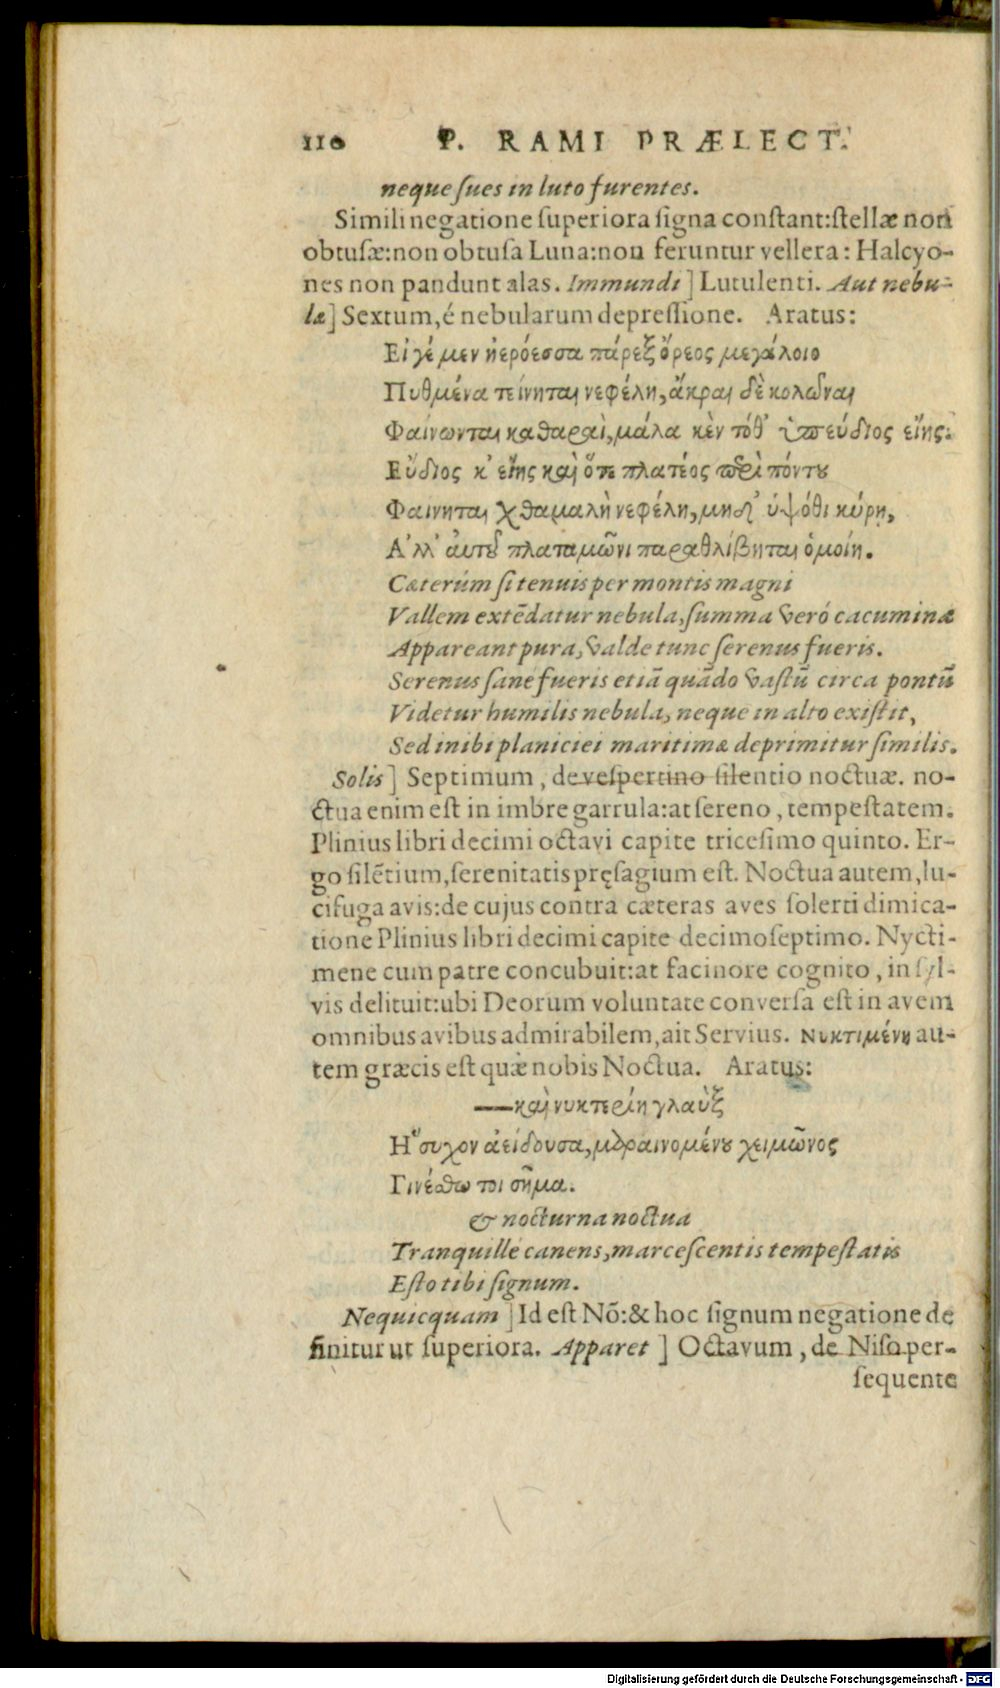 110 P. RAMI PRÆLECT.
neque ſues in luto furentes.
Simili negatione ſuperiora ſigna conſtant:ſtellæ non
obtuſæ:non obtuſa Luna:non feruntur vellera: Halcyo-
nes non pandunt alas. Immundi] Lutulenti. Aut nebu-
læ] Sextum, é nebularum depreſſione. Aratus:
Εἰ γέ μεν ἠερόεσσα πάρεξ ὄρεος μεγάλοιο
Πυθμένα τείνηται νεφέλη, ἄκραι δὲ κολῶναι
Φαίνωνται καθαραὶ, μάλα κὲν τόθ' ὑπεύδιος εἴης.
Εὔδιος κ' εἴης καὶ ὅτε πλατέος περὶ πόντου
Φαινηται χθαμαλὴ νεφέλη, μηδ' ὑψόθι κύρῃ,
Α'λλ' αὐτοῦ πλαταμῶνι παραθλίβηται ὁμοίη.
Cæterúm ſi tenuis per montis magni
Vallem extēdatur nebula, ſumma veró cacumina
Appareant pura, valde tunc ſerenus fueris.
Serenus ſane fueris etiā quādo vaſtū circa pontū
Videtur humilis nebula, neque in alto exiſtit,
Sed inibi planiciei maritimæ deprimitur ſimilis.
Solis] Septimum, de veſpertino ſilentio noctuæ. no-
ctua enim eſt in imbre garrula: at ſereno, tempeſtatem.
Plinius libri decimi octavi capite triceſimo quinto. Er-
go ſilētium, ſerenitatis pręſagium eſt. Noctua autem, lu-
cifuga avis: de cujus contra cæteras aves ſolerti dimica-
tione Plinius libri decimi capite decimoſeptimo. Nycti-
mene cum patre concubuit: at facinore cognito, in ſyl-
vis delituit: ubi Deorum voluntate converſa eſt in avem
omnibus avibus admirabilem, ait Servius. Νυκτιμένη au-
tem græcis eſt quæ nobis Noctua. Aratus:
—καὶ νυκτερίη γλαὺξ
Η῞συχον ἀείδουσα, μαραινομένου χειμῶνος
Γινέσθω τοι σῆμα.
& nocturna noctua
Tranquillé canens, marceſcentis tempeſtatis
Eſto tibi ſignum.
Nequicquam] Id eſt Nō: & hoc ſignum negatione de
finitur ut ſuperiora. Apparet] Octavum, de Niſo per-
ſequente
Digitalisierung gefördert durch die Deutsche Forschungsgemeinschaft - DFG